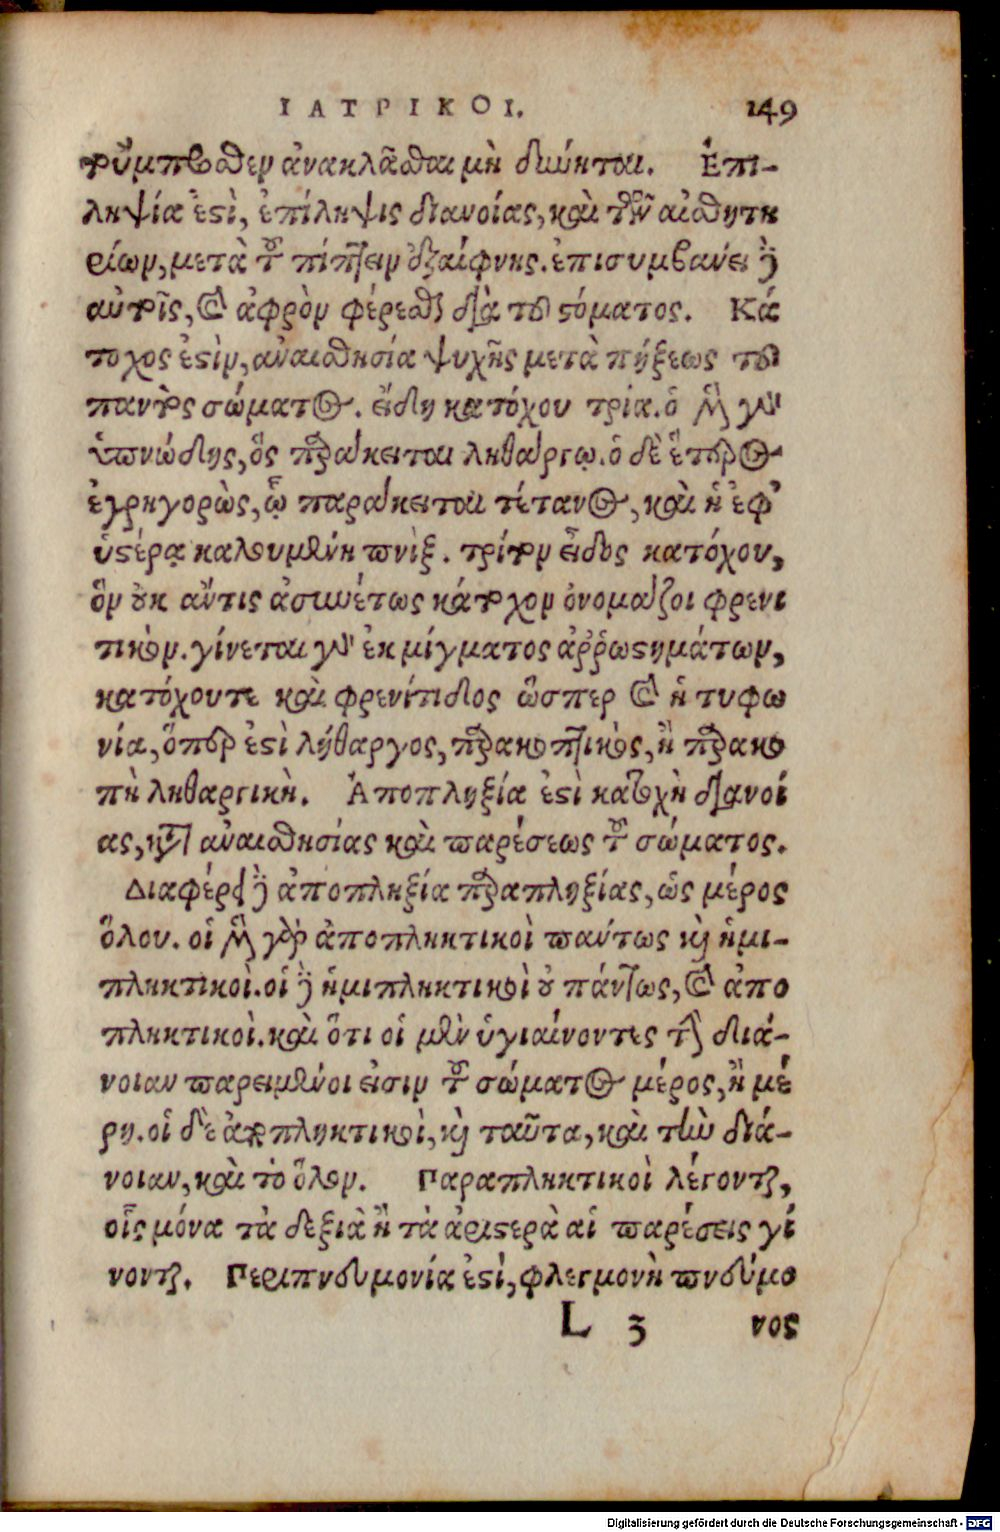 ΙΑΤΡΙΚΟΙ. 149
τοὔμπροσθεν ἀνακλᾶσθαι μὴ δύνηται. Ἐπι-
ληψία ἐστὶ, ἐπίληψις διανοίας, καὶ τῶν αἰσθητη
ρίων, μετὰ τοῦ πίπτειν ἐξαίφνης. ἐπισυμβαίνει δὲ
αὐτοῖς, καὶ ἀφρὸν φέρεσθαι διὰ τοῦ στόματος. Κά
τοχος ἐστὶν, ἀναισθησία ψυχῆς μετὰ πήξεως τοῦ
παντὸς σώματος. εἴδη κατόχου τρία. ὁ μὲν γὰρ
ὑπνώδης, ὃς παράκειται ληθάργῳ. ὁ δὲ ἕτερος
ἐγρηγορὼς, ᾧ παράκειται τέτανος, καὶ ἡ ἐφ᾽
ὑστέρᾳ καλουμένη πνὶξ. τρίτον εἶδος κατόχου,
ὃν οὐκ ἄν τις ἀσυνέτως κάτοχον ὀνομάζοι φρενι
τικὸν. γίνεται γὰρ ἐκ μίγματος ἀῤῥωστημάτων,
κατόχου τε καὶ φρενίτιδος ὥσπερ καὶ ἡ τυφω
νία, ὅπερ ἐστὶ λήθαργος, παρακοπτικὸς, ἢ παρακο
πὴ ληθαργικὴ. Ἀποπληξία ἐστὶ κατοχὴ διανοί
ας, μετ᾽ ἀναισθησίας καὶ παρέσεως τοῦ σώματος.
Διαφέρει δὲ ἀποπληξία παραπληξίας, ὡς μέρος
ὅλου. οἱ μὲν γὰρ ἀποπληκτικοὶ πάντως καὶ ἡμι-
πληκτικοὶ. οἱ δὲ ἡμιπληκτικοὶ οὐ πάντως, καὶ ἀπο
πληκτικοὶ. καὶ ὅτι οἱ μὲν ὑγιαίνοντες τὴν διά-
νοιαν παρειμένοι εἰσιν τοῦ σώματος μέρος, ἢ μέ
ρη. οἱ δὲ ἀποπληκτικοὶ, καὶ ταῦτα, καὶ τὴν διά-
νοιαν, καὶ τὸ ὅλον. Παραπληκτικοὶ λέγονται,
οἷς μόνα τὰ δεξιὰ ἢ τὰ ἀριστερὰ αἱ παρέσεις γί
νονται. Περιπνευμονία ἐστὶ, φλεγμονὴ πνεύμο
L 3 νος
Digitalisierung gefördert durch die Deutsche Forschungsgemeinschaft - DFG